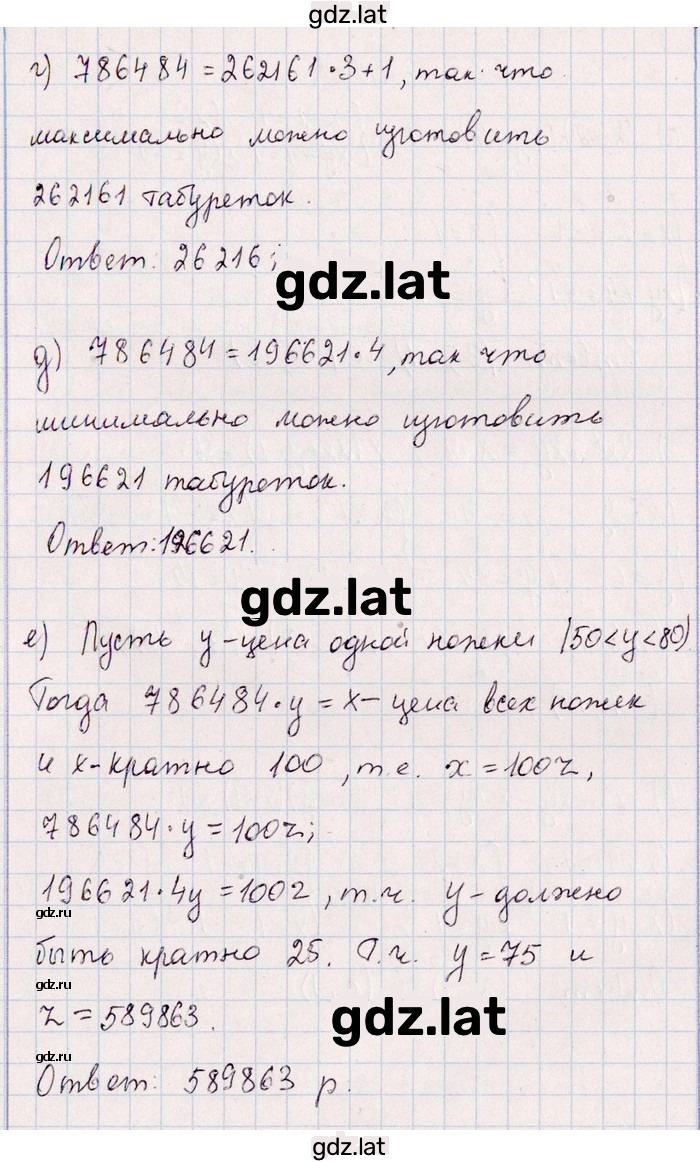 gdz.lat
г) 786484 = 262161·3+1, так что
максимально можно изготовить
262161 табуреток.
Ответ: 26216;
gdz.lat
д) 786484 = 196621·4, так что
минимально можно изготовить
196621 табуреток.
Ответ: 196621.
gdz.lat
е) Пусть y - цена одной ножки (50<y<80)
Тогда 786484·y = x - цена всех ножек
и x - кратно 100, т.е. x = 100z,
786484·y = 100z;
196621·4y = 100z, т.ч. y - должно
gdz.ru
быть кратно 25. Т.ч. y = 75 и
gdz.ru
z = 589863.
gdz.lat
gdz.ru
Ответ: 589863 р.
gdz.lat